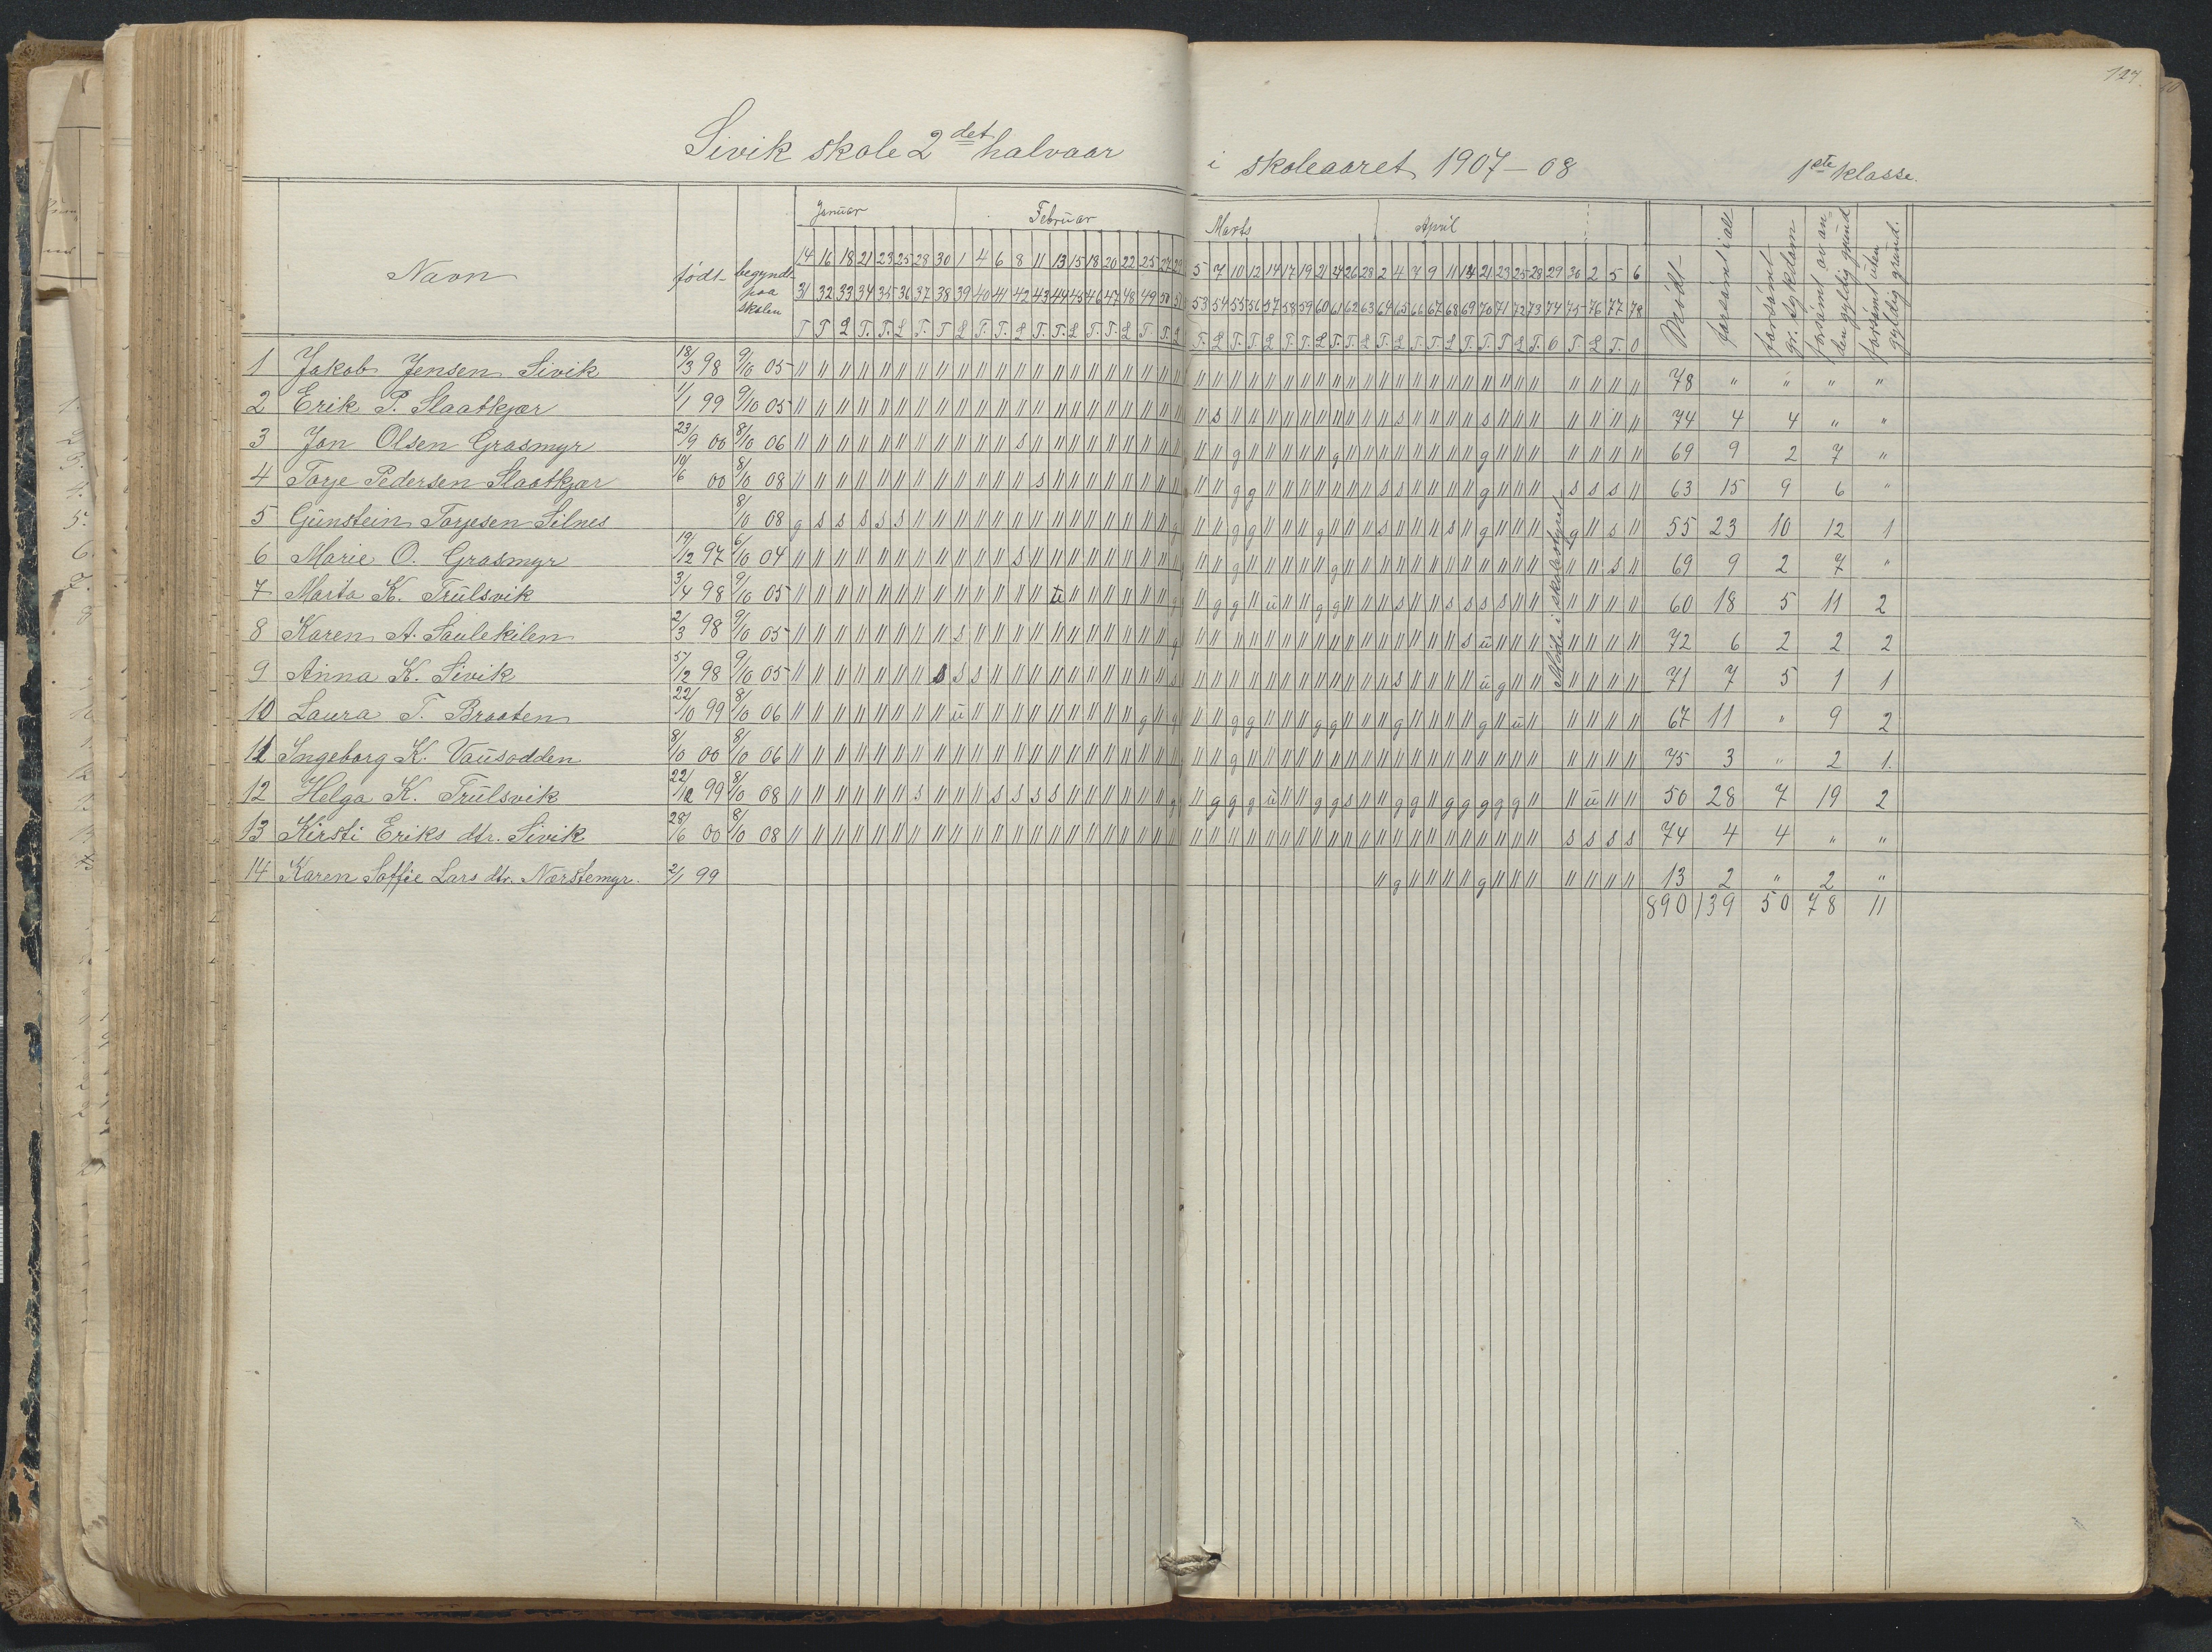 127.
Sivik skole 2det halvaar i skoleaaret 1907-08 1ste klasse.
Januar Februar Marts April
Navn født begyndt paa skolen
14 16 18 21 23 25 28 30 1 4 6 8 11 13 15 18 20 22 25 27 29 5 7 10 12 14 17 19 21 24 26 28 2 4 7 9 11 14 21 23 25 28 29 30 2 5 6
31 32 33 34 35 36 37 38 39 40 41 42 43 44 45 46 47 48 49 50 51 53 54 55 56 57 58 59 60 61 62 63 64 65 66 67 68 69 70 71 72 73 74 75 76 77 78
Mødt
forsømt i alt
forsømt gr. sykdom
forsømt av anden gyldig grund
forsømt uten gyldig grund.
Møte i skolestyret
1 Jakob Jensen Sivik 18/3 98 9/10 05 78 " " " "
2 Erik P. Slaatkjær 1/1 99 9/10 05 74 4 4 " "
3 Jon Olsen Grasmyr 23/9 00 8/10 06 69 9 2 7 "
4 Torje Pedersen Slaatkjær 10/6 00 8/10 08 63 15 9 6 "
5 Gunstein Torjesen Silnes 8/10 08 55 23 10 12 1
6 Marie O. Grasmyr 19/12 97 6/10 04 69 9 2 7 "
7 Marta K. Trulsvik 3/4 98 9/10 05 60 18 5 11 2
8 Karen A. Saulekilen 2/3 98 9/10 05 72 6 2 2 2
9 Anna K. Sivik 5/12 98 9/10 05 71 7 5 1 1
10 Laura T. Braaten 22/10 99 8/10 06 67 11 " 9 2
11 Ingeborg K. Vausodden 8/10 00 8/10 06 75 3 " 2 1.
12 Helga K. Trulsvik 22/12 99 8/10 08 50 28 7 19 2
13 Kirsti Eriks dtr. Sivik 28/6 00 8/10 08 74 4 4 " "
14 Karen Soffie Lars dtr. Nærstemyr. 2/1 99 13 2 " 2 "
890 139 50 78 11